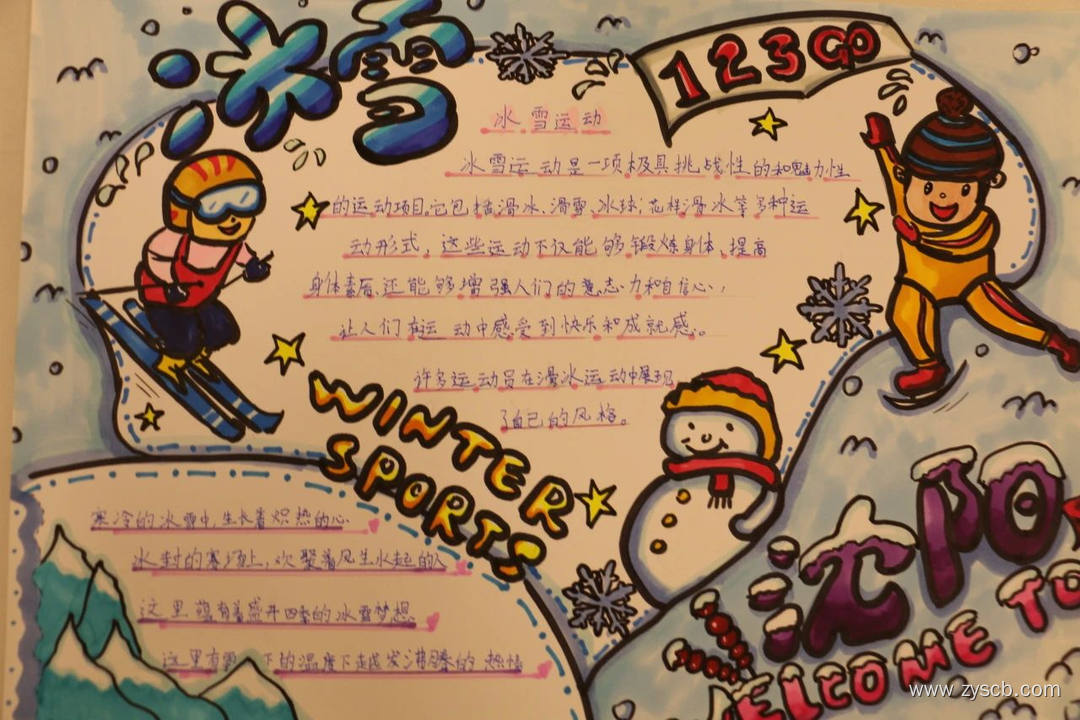 冰雪
123GO
冰雪运动
冰雪运动是一项极具挑战性的和魅力性
的运动项目,它包括滑冰、滑雪、冰球,花样滑冰等多种运
动形式，这些运动不仅能够锻炼身体、提高
身体素质,还能够增强人们的意志力和自信心，
让人们在运动中感受到快乐和成就感。
许多运动员在滑冰运动中展现
了自己的风格。
WINTER
SPORTS
寒冷的冰雪中,生长着炽热的心
冰封的赛场上,欢聚着风生水起的人
这里蕴有着盛开四季的冰雪梦想.
这里有零下的温度下越发沸腾的热情
沈阳
WELCOME TO
www.zyscb.com